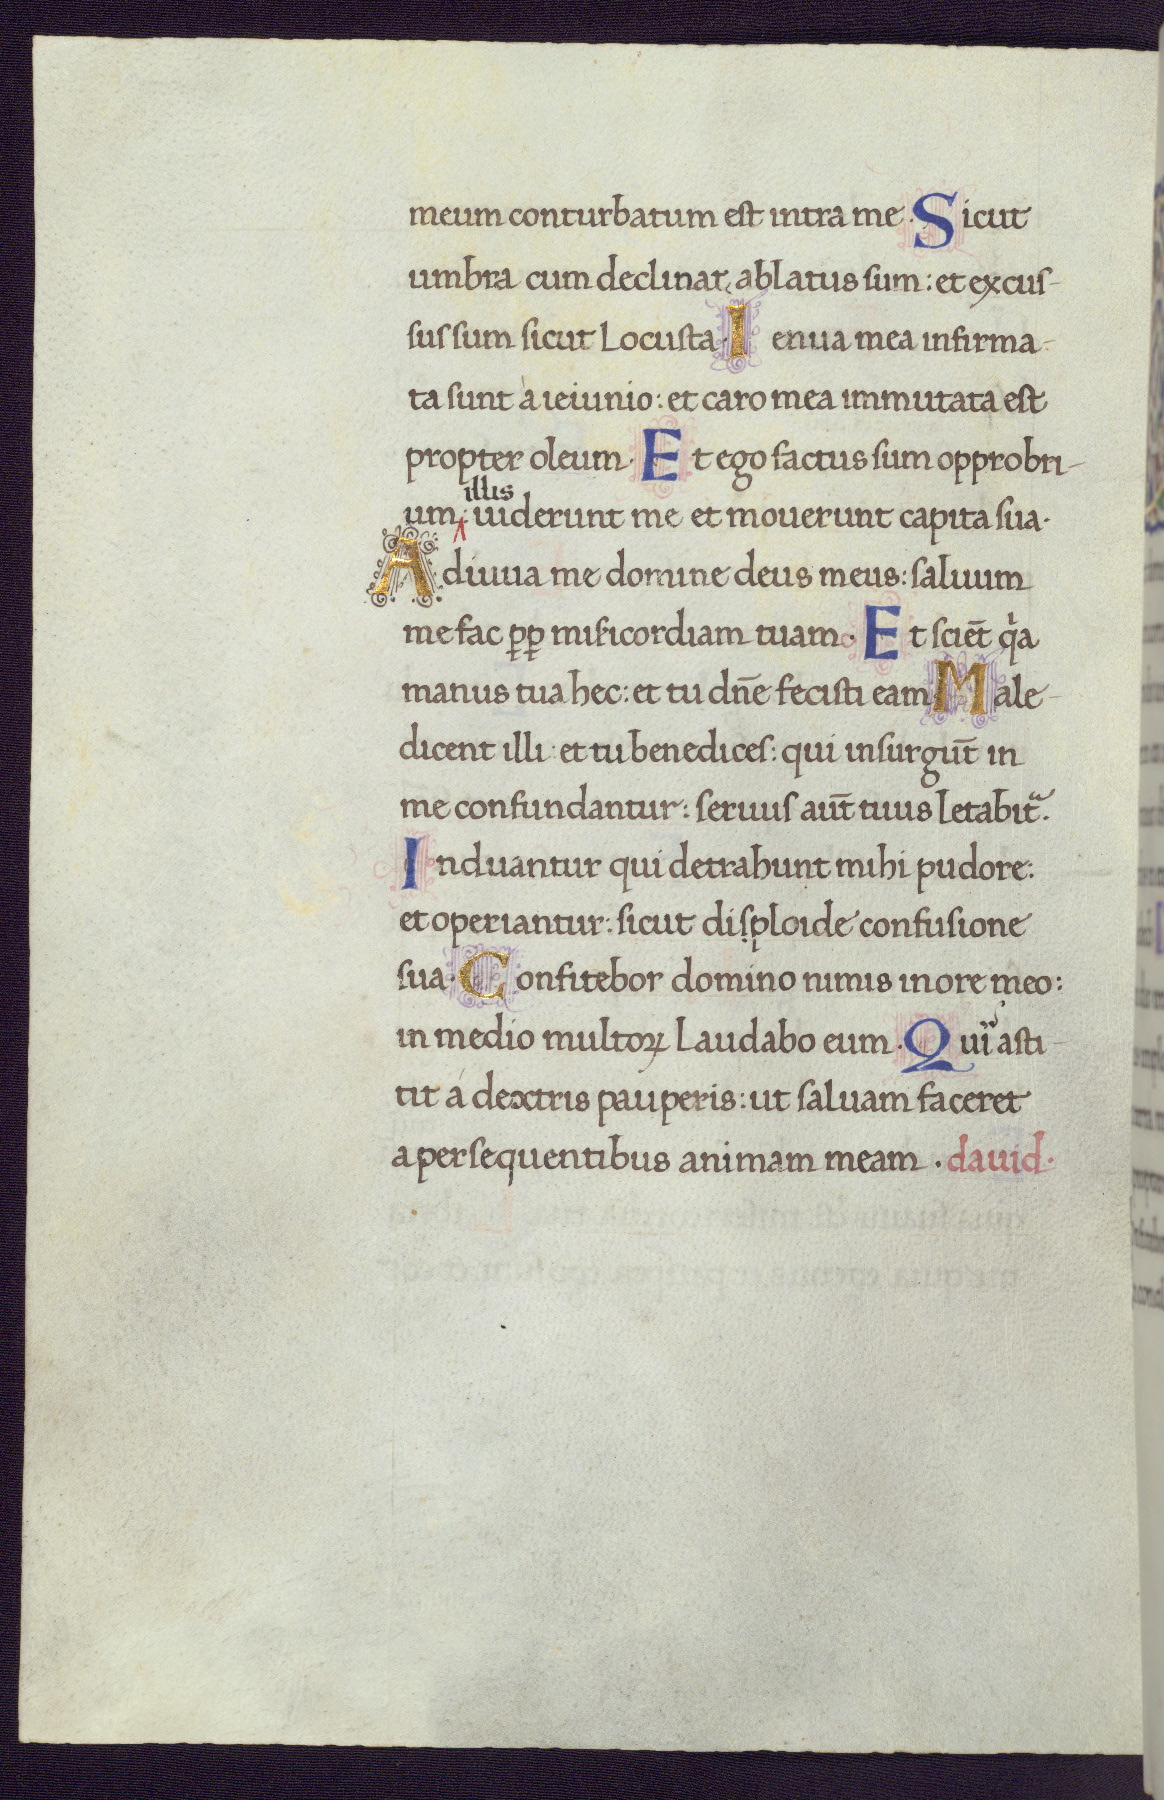 meum conturbatum est intra me. Sicut
umbra cum declinat, ablatus sum: et excus-
sus sum sicut Locusta. I enua mea infirma-
ta sunt à ieiunio: et caro mea immutata est
propter oleum. Et ego factus sum opprobri-
illis
um: uiderunt me et mouerunt capita sua.
Adiuua me domine deus meus: saluum
me fac ꝓꝓ misericordiam tuam. Et scient̄ qͥa
manus tua hec: et tu dn̄e fecisti eam Male-
dicent illi: et tu benedices: qui insurgūt in
me confundantur: seruus aūt tuus letabit᷑.
Induantur qui detrahunt mihi pudore:
et operiantur: sicut disploide confusione
sua. Confitebor domino nimis in ore meo:
in medio multoꝝ Laudabo eum. Qui asti-
tit á dextris pauperis: ut saluam faceret
a persequentibus animam meam. dauid.